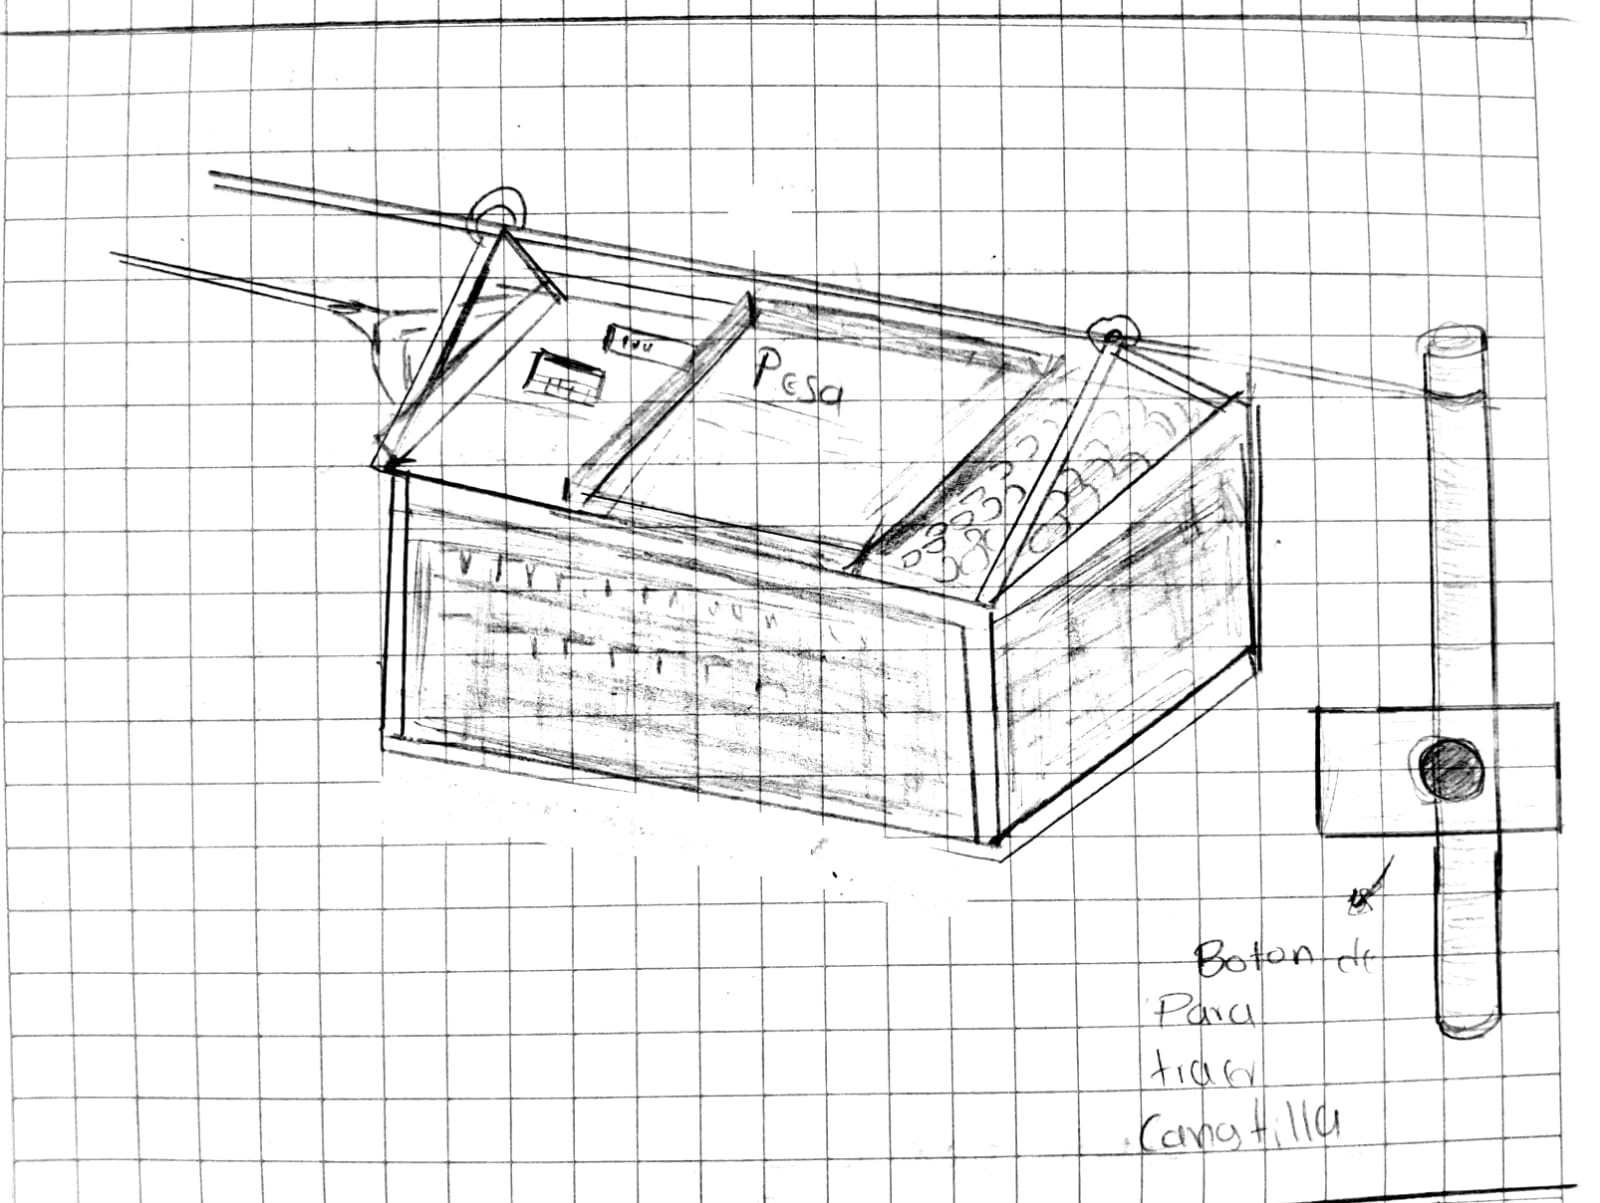 Pesa
Boton de
Para
traer
Canastilla